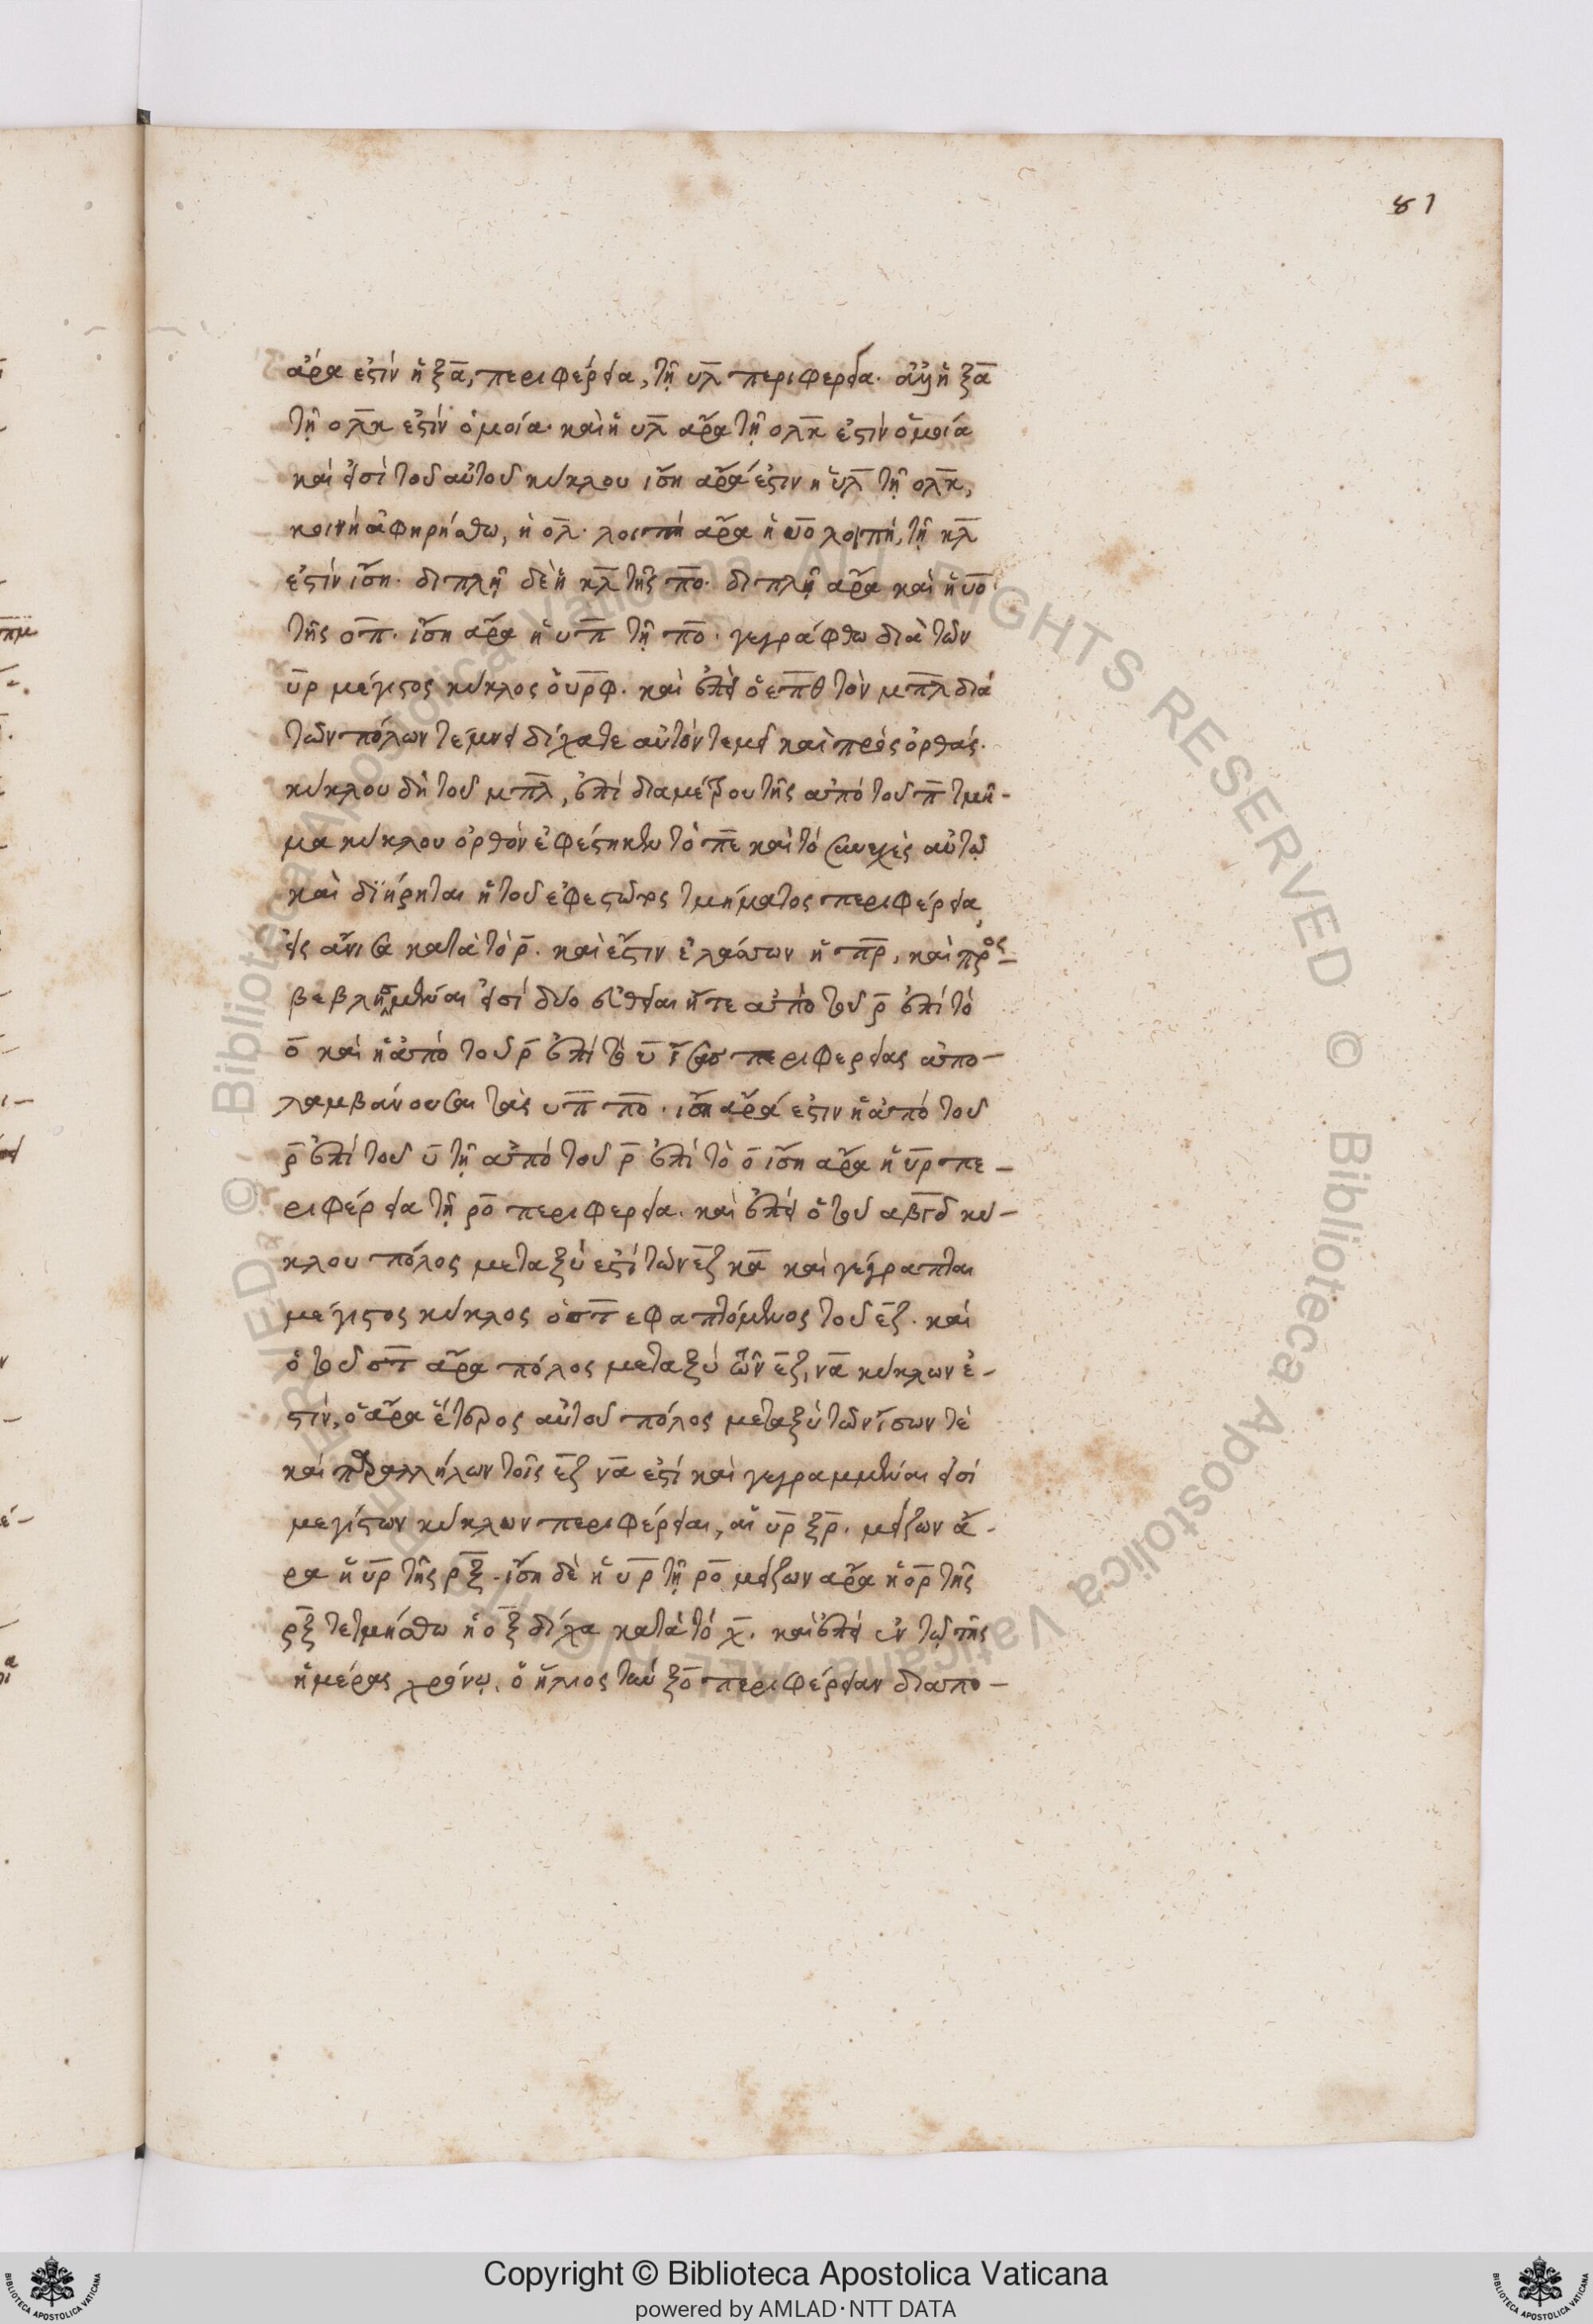 81
ἄρα ἐστὶν ἡ ξα, περιφέρεια, τῇ υλ περιφερεία. ἀλλ' ἡ ξα
τῇ ολκ ἐστὶν ὁμοία. καὶ ἡ υλ ἄρα τῇ ολκ ἐστὶν ὁμοία
καὶ εἰσὶ τοῦ αὐτοῦ κύκλου ἴση ἄρα ἐστιν ἡ υλ τῇ ολκ,
κοινὴ ἀφηρήσθω, ἡ ολ. λοιπὴ ἄρα ἡ υο λοιπῇ, τῇ κλ
ἐστὶν ἴση. διπλῆ δὲ ἡ κλ τῆς πο. διπλῆ ἄρα καὶ ἡ υο
τῆς οπ. ἴση ἄρα ἡ υπ τῇ πο. γεγράφθω διὰ τῶν
υρ μέγιστος κύκλος ὁ υρφ. καὶ ἐπεὶ ὁ επθ τὸν μπλ διὰ
τῶν πόλων τέμνει δίχα τε αὐτὸν τεμεῖ καὶ πρὸς ὀρθάς.
κύκλου δὴ τοῦ μπλ, ἐπὶ διαμέτρου τῆς ἀπὸ τοῦ π τμῆ-
μα κύκλου ὀρθὸν ἐφέστηκεν τὸ πε καὶ τὸ συνεχὲς αὐτῷ
καὶ διῄρηται ἡ τοῦ ἐφεστῶτος τμήματος περιφέρεια
εἰς ἄνισα κατὰ τὸ ρ. καὶ ἔστιν ἐλάσσων ἡ πρ, καὶ προσ-
βεβλημέναι εἰσὶ δύο εὐθεῖαι ἥ τε ἀπὸ τοῦ ρ ἐπὶ τὸ
ο καὶ ἡ ἀπὸ τοῦ ρ ἐπὶ τὸ υ ἴσας περιφερείας ἀπο-
λαμβάνουσαι τὰς υπ πο. ἴση ἄρα ἐστιν ἡ ἀπὸ τοῦ
ρ ἐπὶ τοῦ υ τῇ ἀπὸ τοῦ ρ ἐπὶ τὸ ο ἴση ἄρα ἡ υρ πε-
ριφέρεια τῇ ρο περιφερεία. καὶ ἐπεὶ ὁ τοῦ αβγδ κύ-
κλου πόλος μεταξύ ἐστὶ τῶν εζ κα καὶ γέγραπται
μέγιστος κύκλος ὁ στ ἐφαπτόμενος τοῦ εζ. καὶ
ὁ τοῦ στ ἄρα πόλος μεταξὺ τῶν εζ, να κύκλων ἐ-
στίν, ὁ ἄρα ἕτερος αὐτοῦ πόλος μεταξὺ τῶν ἴσων τὲ
καὶ παραλλήλων τοῖς εζ να ἐστὶ καὶ γεγραμμέναι εἰσὶ
μεγίστων κύκλων περιφέρειαι, αἱ υρ ξρ. μείζων ἄ-
ρα ἡ υρ τῆς ρξ. ἴση δὲ ἡ υρ τῇ ρο μείζων ἄρα ἡ ορ τῆς
ρξ τετμήσθω ἡ οξ δίχα κατὰ τὸ χ. καὶ ἐπεὶ ἐν τῷ τῆς
ἡμέρας χρόνῳ, ὁ ἥλιος τὴν ξο περιφέρειαν διαπο-
Copyright © Biblioteca Apostolica Vaticana
powered by AMLAD·NTT DATA